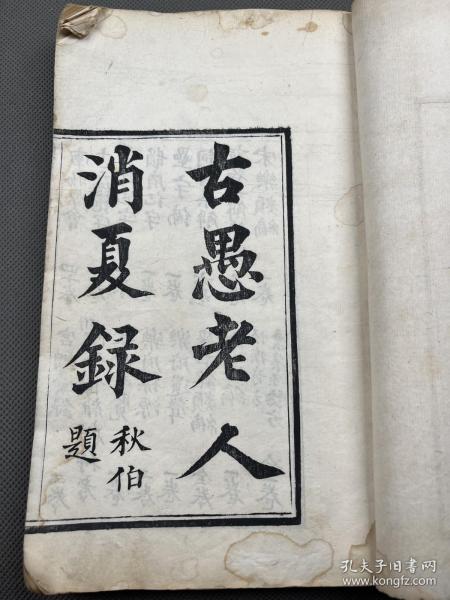 古愚老人
消夏録
秋伯
題
孔夫子旧书网
www.kongfz.com